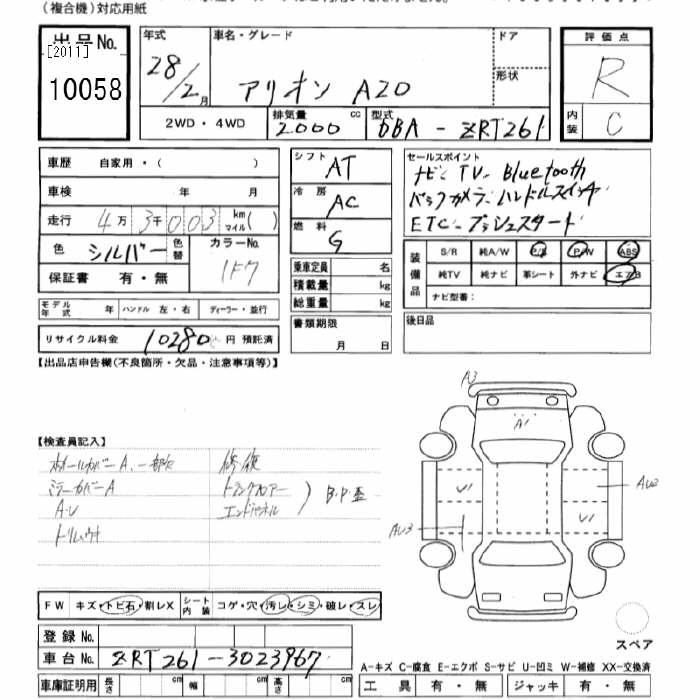 (複合機)対応用紙
出品No.
[2011]
10058
年式 28/2月
車名・グレード アリオン A20
ドア
形状
評価点 R
内装 C
2WD・4WD
排気量 2000 cc
型式 DBA-ZRT261
車歴 自家用・( )
車検 年 月
走行 4万3千003 km マイル( )
色 シルバー 色替
カラーNo. 1F7
保証書 有・無
シフト AT
冷房 AC
燃料 G
乗車定員 名
積載量 kg
総重量 kg
セールスポイント
ナビ・TV・Bluetooth
バックカメラ・ハンドルスイッチ
ETC・プッシュスタート
装備品 S/R 純A/W P/S P/W ABS
純TV 純ナビ 革シート 外ナビ エアB
ナビ型番:
モデル年式 年 ハンドル 左・右 ディーラー・並行
リサイクル料金 10280 円 預託済
書類期限
月 日
後日品
【出品店申告欄(不良箇所・欠品・注意事項等)】
【検査員記入】
ホイールカバーA、一部欠
ミラーカバーA
A・U
修復
トランクフロアー
エンドパネル
B・P・歪
A3
A1
U1
U1
AU2
AU3
FW キズ・トビ石・割レX シート内装 コゲ・穴・汚レ・シミ・破レ・スレ
スペア
登録No.
車台No. ZRT261-3023967
A-キズ C-腐食 E-エクボ S-サビ U-凹ミ W-補修 XX-交換済
車庫証明用 長さ cm 幅 cm 高さ cm
工具 有・無 ジャッキ 有・無